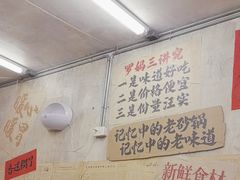 罗妈三讲究
一是味道好吃
二是价格便宜
三是份量注实
记忆中的老砂锅
记忆中的老味道
新鲜食材